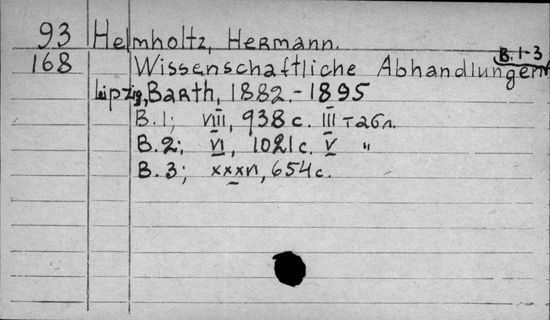 93 Helmholtz, Hermann.
168 Wissenschaftliche Abhandlungen B. 1-3
Leipzig, Barth, 1882.-1895
B. 1; VIII, 938 с. III табл.
B. 2; VI, 1021 с. V "
B. 3; XXXVI, 654 с.